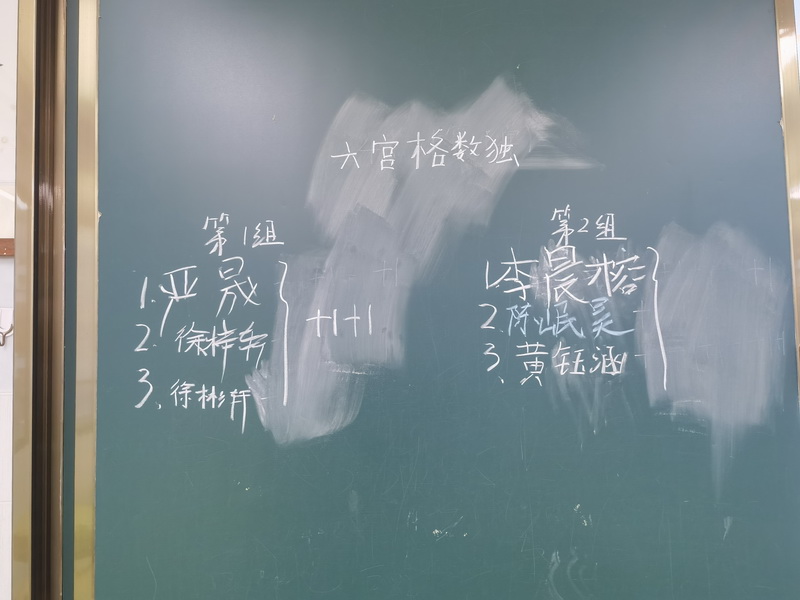 六宫格数独
第1组
1.严晟
2.徐梓轩
3、徐彬轩
+1+1
第2组
1.李晨榕
2.陈岷昊
3、黄钰涵